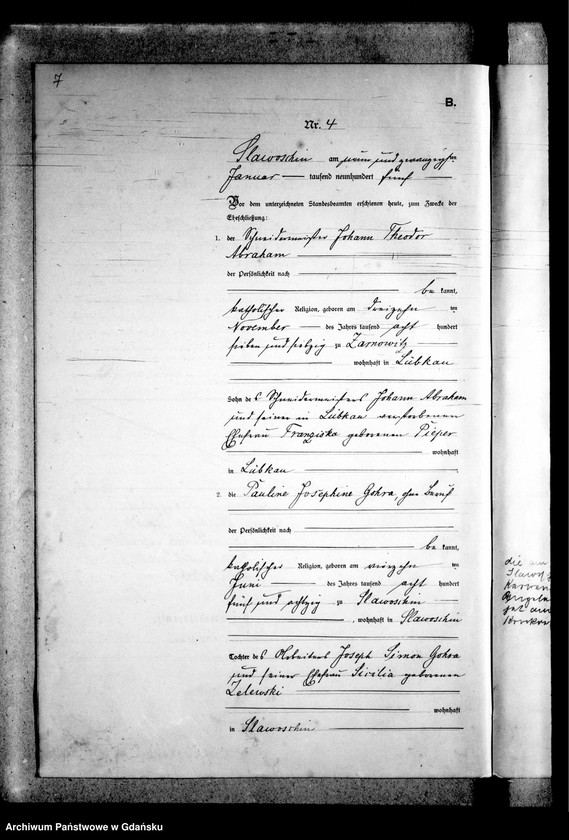 7
B.
Nr. 4
Slawoschin am neun und zwanzigsten
Januar tausend neunhundert fünf
Vor dem unterzeichneten Standesbeamten erschienen heute, zum Zwecke der
Eheschließung:
1. der Schneidermeister Johann Theodor
Abraham
der Persönlichkeit nach
be kannt,
katholischer Religion, geboren am dreizehn ten
November des Jahres tausend acht hundert
sieben und siebzig zu Zarnowitz
wohnhaft in Lübkau
Sohn des Schneidermeisters Johann Abraham
und seiner in Lübkau verstorbenen
Ehefrau Franziska geborenen Pieper
wohnhaft
in Lübkau
2. die Pauline Josephine Gohra, ohne Beruf
der Persönlichkeit nach
be kannt,
katholischer Religion, geboren am vierzehn ten
Juni des Jahres tausend acht hundert
fünf und achtzig zu Slawoschin
, wohnhaft in Slawoschin
Tochter des Arbeiters Joseph Simon Gohra
und seiner Ehefrau Cicilia geborenen
Zelewski
wohnhaft
in Slawoschin
die am
Archiwum Państwowe w Gdańsku